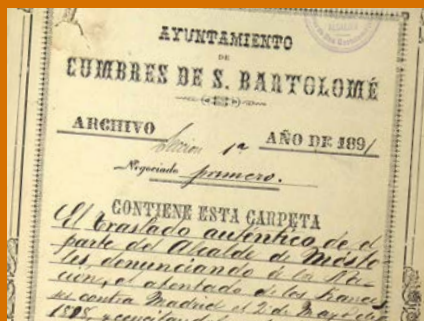 AYUNTAMIENTO
DE
CUMBRES DE S. BARTOLOMÉ
ARCHIVO
Sección 1ª AÑO DE 1891
Negociado primero.
CONTIENE ESTA CARPETA
El traslado auténtico de el
parte del Alcalde de Mósto
les, denunciando de la Na
ción, el atentado de los france
ses contra Madrid el 2 de Mayo de
1808,